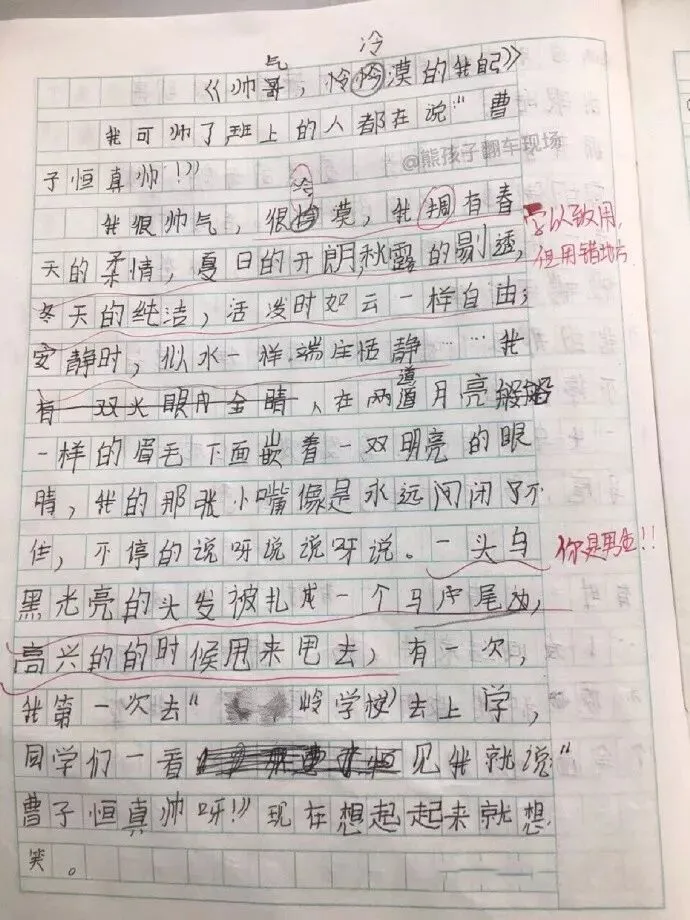 气 冷
《帅哥，怜怜漠的我自己》
我可帅了，班上的人都在说“曹
@熊孩子翻车现场
子恒真帅！”
冷
我很帅气，很漠，我拥有春
学以致用，
但用错地方
天的柔情，夏日的开朗，秋露的剔透，
冬天的纯洁，活泼时如云一样自由；
安静时，似水一样端庄恬静……我
道
有一双火眼金睛，在两道月亮般
一样的眉毛下面嵌着一双明亮的眼
睛，我的那张小嘴像是永远闭不
住，不停的说呀说说呀说。一头乌
你是男生!!
黑光亮的头发被扎成一个马尾巴，
高兴的的时候甩来甩去，有一次，
我第一次去“学校”去上学，
同学们一看见我就说“
曹子恒真帅呀！”现在想起起来就想
笑。